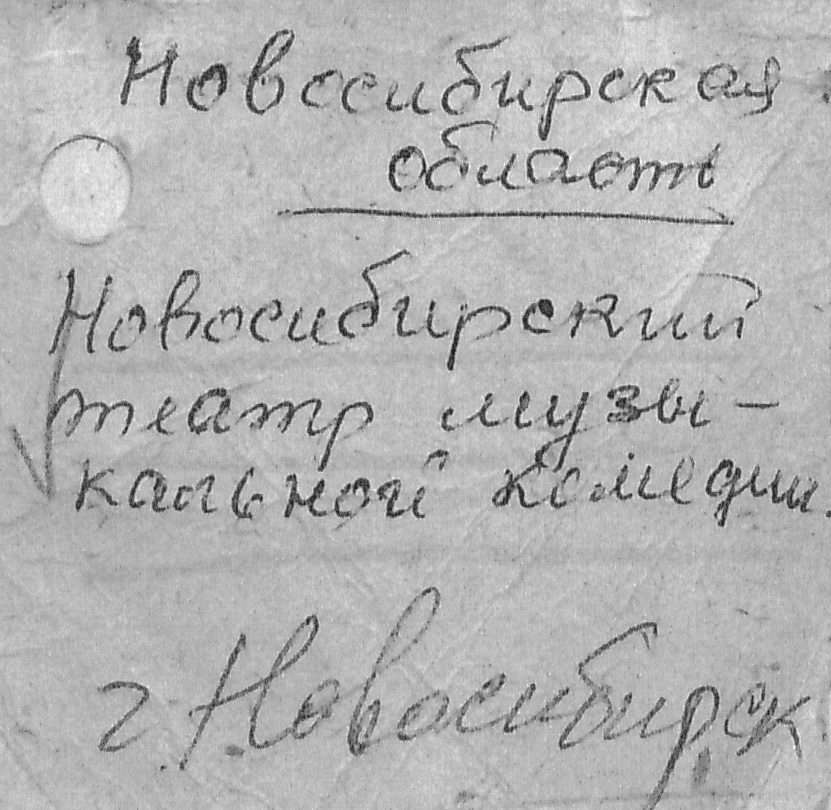 Новосибирская
область
Новосибирский
театр музы-
кальной комедии.
г. Новосибирск